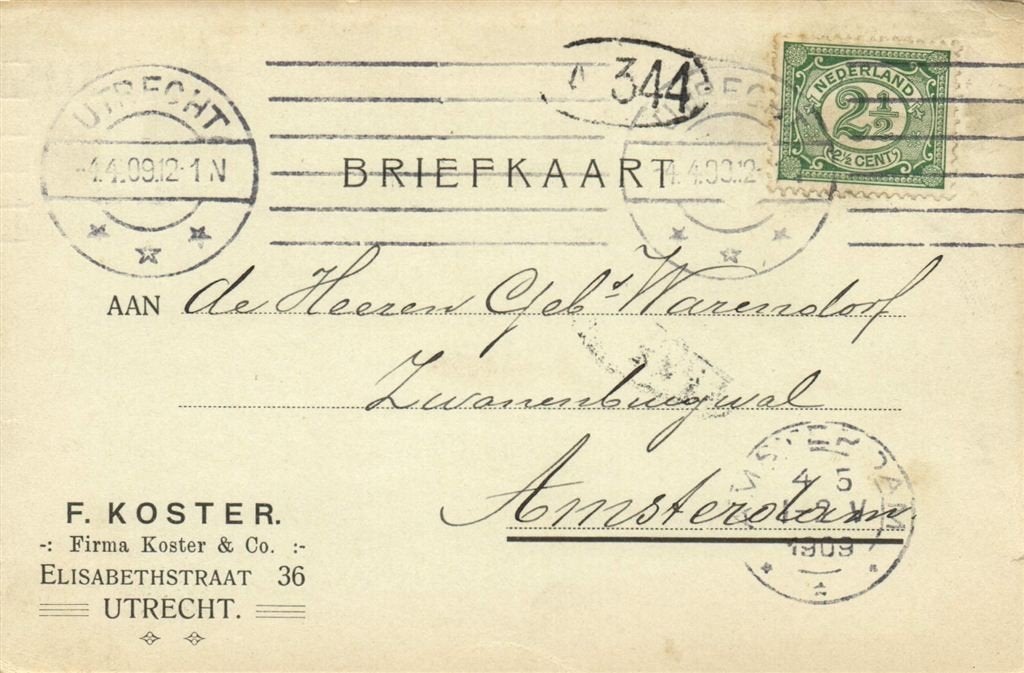 UTRECHT
-4.4.09.12-1 N
344
NEDERLAND
2½
2½ CENT
BRIEFKAART
4.4.09.12-
AAN de Heeren Gebs Warendorf
Zwanenburgwal
Amsterdam
AMSTERDAM
4 5
1909
F. KOSTER.
-: Firma Koster & Co. :-
ELISABETHSTRAAT 36
UTRECHT.